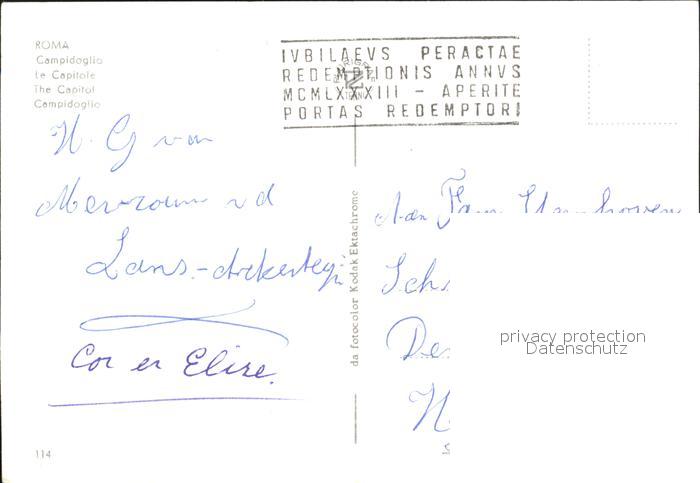 ROMA
Campidoglio
Le Capitole
The Capitol
Campidoglio
IVBILAEVS PERACTAE
REDEMPTIONIS ANNVS
MCMLXXXIII - APERITE
PORTAS REDEMPTORI
H. G van
Mevrouw v d
Lans.-
Cor en Elise.
da fotocolor Kodak Ektachrome
Aan Fam
Sch
De
N
privacy protection
Datenschutz
114